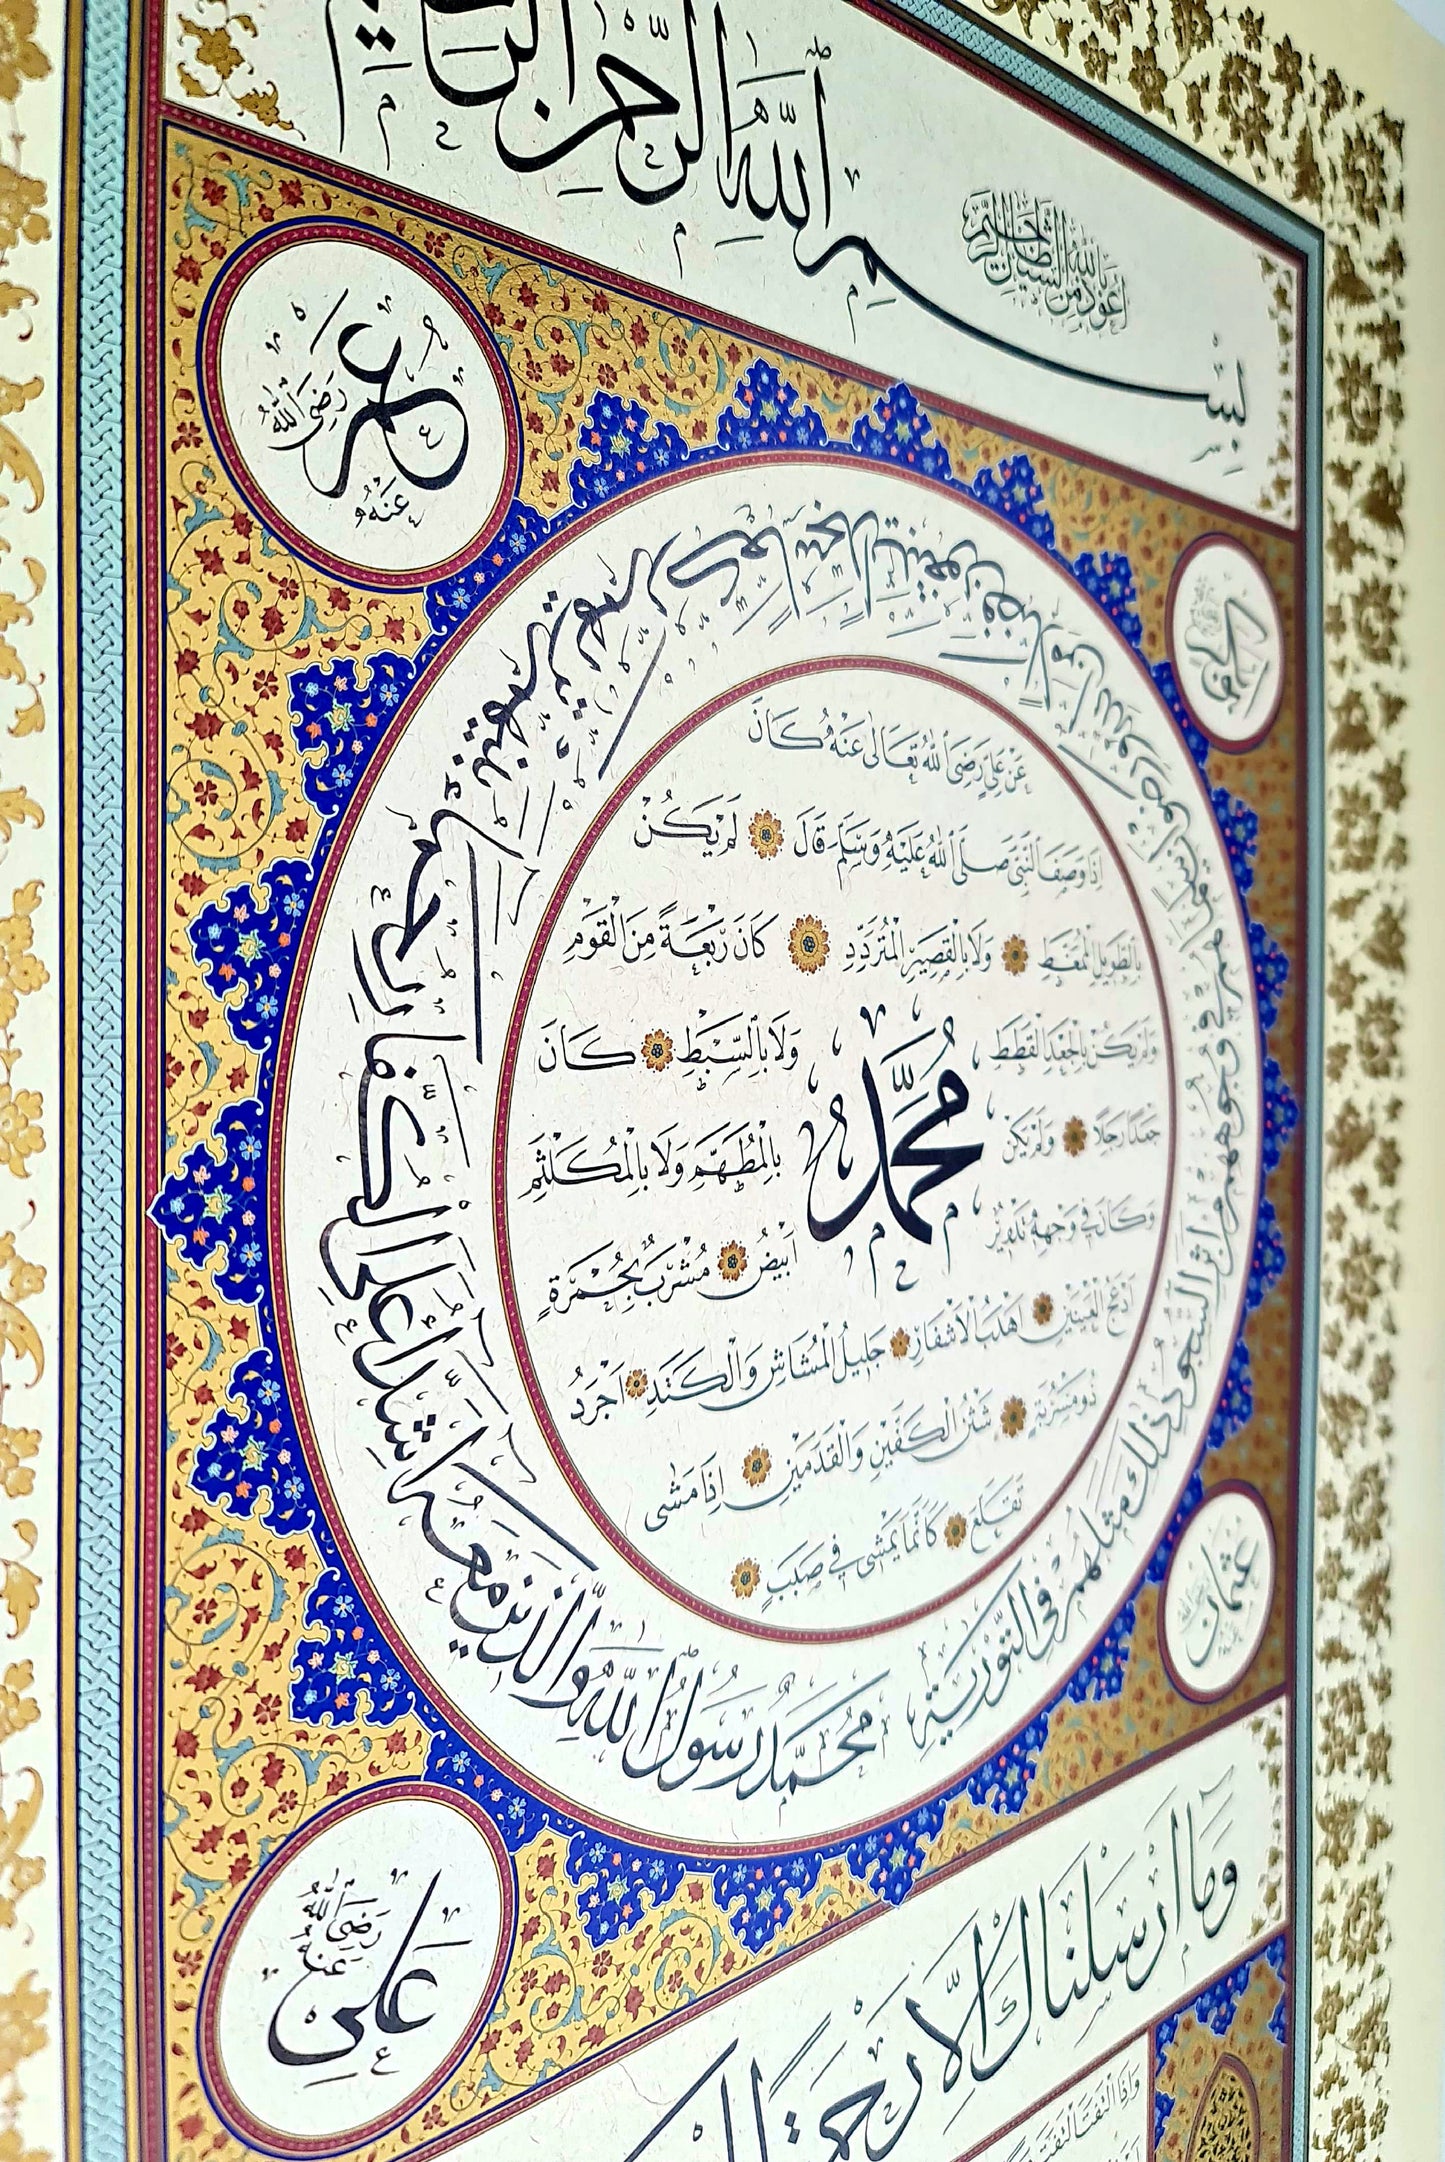 اعوذ بالله من الشيطان الرجيم
بِسْمِ ٱللَّهِ الرَّحْمٰنِ الرَّحِيمِ
عُمَر رَضِيَ ٱللَّهُ عَنْهُ
مُحَمَّدٌ رَسُولُ ٱللَّهِ وَالَّذِينَ مَعَهُ أَشِدَّاءُ عَلَى الْكُفَّارِ رُحَمَاءُ بَيْنَهُمْ تَرٰيهُمْ رُكَّعًا سُجَّدًا يَبْتَغُونَ فَضْلًا مِنَ اللّٰهِ وَرِضْوَانًا سِيمَاهُمْ فِي وُجُوهِهِمْ مِنْ اَثَرِ السُّجُودِ ذٰلِكَ مَثَلُهُمْ فِي التَّوْرٰيةِ
عَنْ عَلِيٍّ رَضِيَ ٱللّٰهُ تَعَالٰى عَنْهُ كَانَ
اِذَا وَصَفَ النَّبِيَّ صَلَّى اللّٰهُ عَلَيْهِ وَسَلَّمَ قَالَ لَمْ يَكُنْ
بِالطَّوِيلِ الْمُمَّغِطِ وَلَا بِالْقَصِيرِ الْمُتَرَدِّدِ كَانَ رَبْعَةً مِنَ الْقَوْمِ
وَلَمْ يَكُنْ بِالْجَعْدِ الْقَطَطِ وَلَا بِٱلسَّبْطِ كَانَ
جَعْدًا رَجِلًا وَلَمْ يَكُنْ بِالْمُطَهَّمِ وَلَا بِالْمُكَلْثَمِ
مُحَمَّد
وَكَانَ فِي وَجْهِهِ تَدْوِيرٌ اَبْيَضُ مُشْرَبٌ بِحُمْرَةٍ
اَدْعَجُ الْعَيْنَيْنِ اَهْدَبُ الْاَشْفَارِ جَلِيلُ الْمُشَاشِ وَالْكَتَدِ اَجْرَدُ
ذُو مَسْرُبَةٍ شَثْنُ الْكَفَّيْنِ وَالْقَدَمَيْنِ اِذَا مَشٰى
تَقَلَّعَ كَاَنَّمَا يَمْشِي فِي صَبَبٍ
عثمان
عَلِيّ رَضِيَ ٱللّٰهُ عَنْهُ
وَمَا اَرْسَلْنَاكَ اِلَّا رَحْمَةً
وَاِذَا الْتَفَتَ الْتَفَتَ